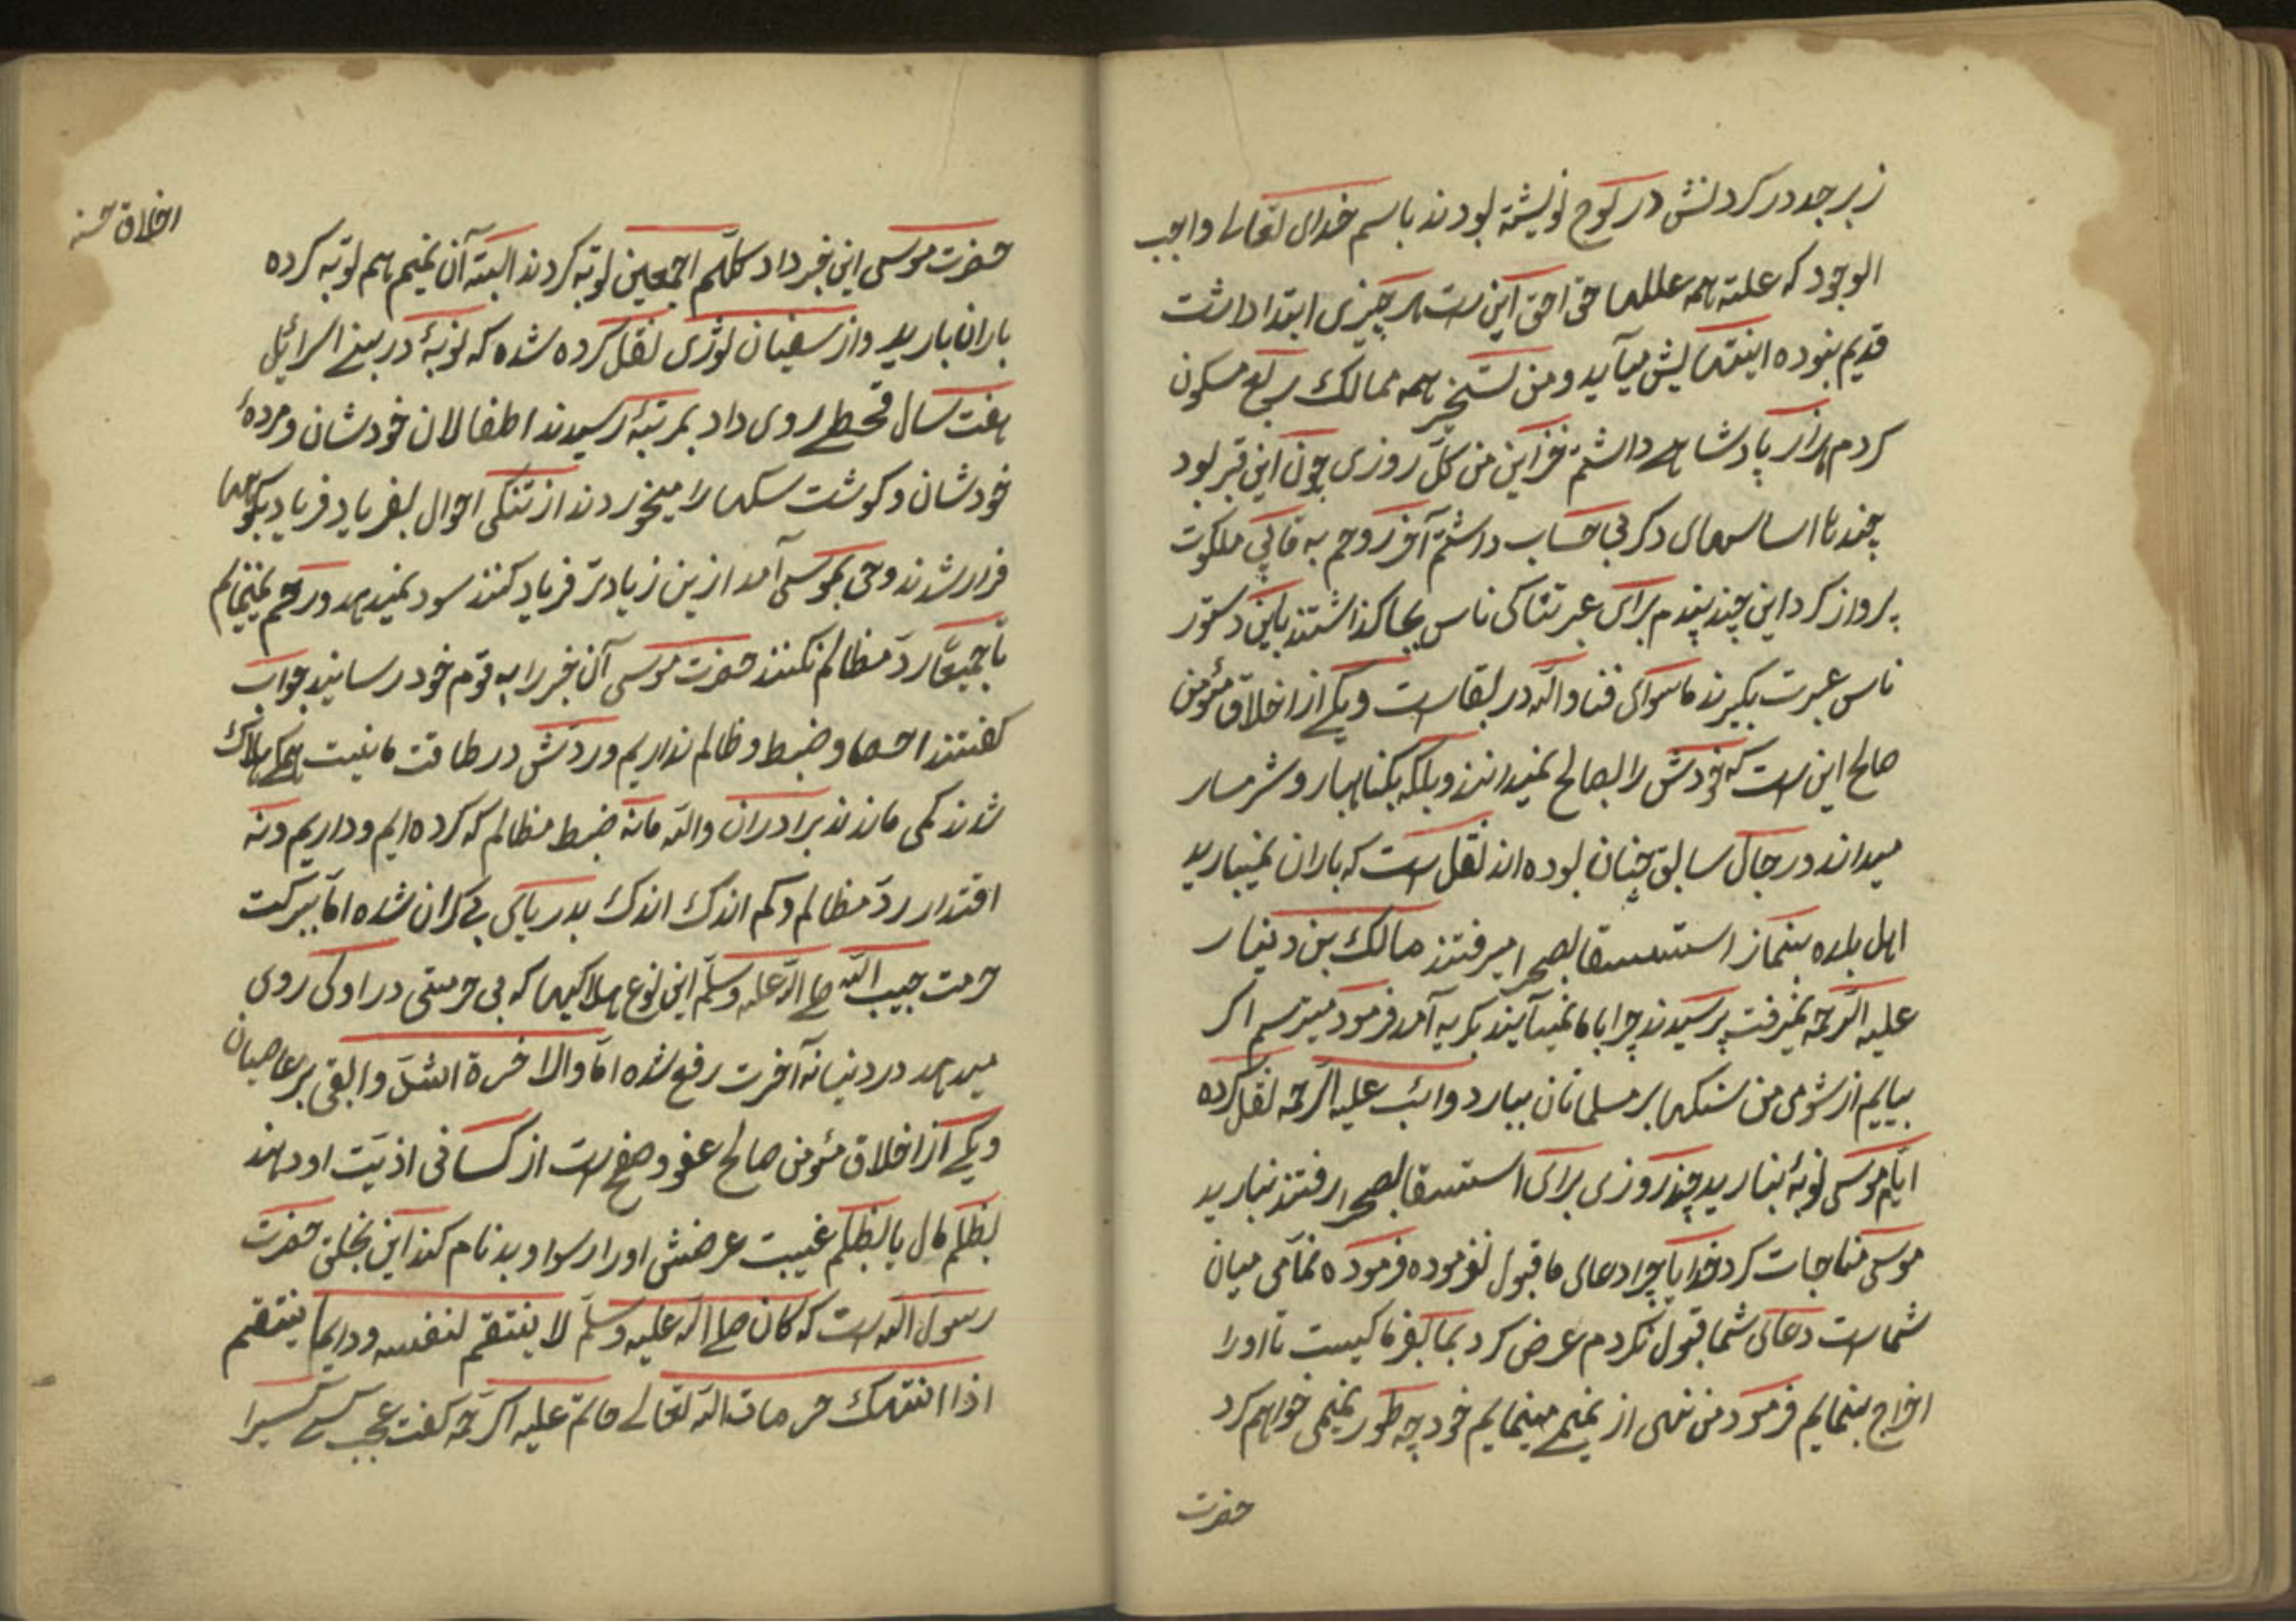 زبرجد در کردنش در لوح نویشته بودند باسم خدای تعالی واجب
الوجود که علته همه عللها حق احق این است هر چیزی ابتدا داشت
قدیم نبوده اینتهایش میآید و من تسخیر همه ممالک ربع مسکون
کردم هزار پادشاهی داشتم خزاین من کل روزی چون این قبر بود
چندنا اساسهای دکر بی حساب داشتم آخر روحم به ملکوت
پرواز کرد این چند پندم برای عبرتناکی ناس بجا کذاشتند باین دستور
ناس عبرت بکیرند ماسوای فنا والله در بقاست و یکی از اخلاق مؤمن
صالح این است که خودش را بصالح نمیدانند و بلکه بکناهبار و شرمسار
میداند در جال سابق چنان بوده اند نقل است که باران نمیبارید
اهل بلده بنماز استسقا بصحرا میرفتند مالک بن دینار
علیه الرحمه نمیرفت پرسیدند چرا با ما نمیآیند بکریه آمد فرمود میترسم اکر
بیایم از شومی من سنکها بر مسلمانان ببارد علیه الرحمه نقل کرده
ایام موسی نوبهٔ نبارید چند روزی برای استسقا بصحرا رفتند نبارید
موسی مناجات کرد خدایا چرا دعای ما قبول نفرموده فرموده نمامی میان
شماست دعای شما قبول نکردم عرض کرد بما بفرما کیست تا اورا
اخراج بنمایم فرمود من نهی از نمیمی مینمایم خود چه طور نمیمی خواهم کرد
حضرت
اخلاق حسنه
حضرت موسی این خبر داد کلهم اجمعین توبه کردند البته آن نمیم هم توبه کرده
باران بارید و از سفیان ثوری نقل کرده شده که نوبهٔ در بنی اسرائیل
هفت سال قحطی روی داد بمرتبهٔ رسیدند اطفالان خودشان و مردهٔ
خودشان و کوشت سکها را میخوردند از تنکی احوال بفریاد فریاد بکوهها
فرار شدند وحی بموسی آمد ازین زیادتر فریاد کنند سود نمیدهد و رحم نمینمایم
تا جمیعًا ردّ مظالم نکنند حضرت موسی آن خبر را به قوم خود رسانید جواب
کفتند احصا و ضبط و ظالم نداریم و ردش در طاقت ما نیست همکی هلاک
شدند کمی ماندند برادران والله مانه ضبط مظالم که کرده ایم و داریم و نه
اقتدار ردّ مظالم و کم اندک اندک بدریای بی کران شده امّا ببرکت
حرمت حبیب الله صلی الله علیه وسلم این نوع هلاکیها که بی حرمتی در اوکی روی
میدهد در دنیا نه آخرت رفع شده امّا والاخرة اشدّ وابقی بر عاصیان
و یکی از اخلاق مؤمن صالح عفو و صفح است از کسانی اذیّت او دهند
بظلم مال یا بظلم غیبت عرضش اورا رسوا و بدنام کند این بخلق حضرت
رسول الله است که کان صلی الله علیه وسلم لا ینتقم لنفسه و دایما ینتقم
اذا انتهک حرمات الله تعالی حاتم علیه الرحمه کفت عجب